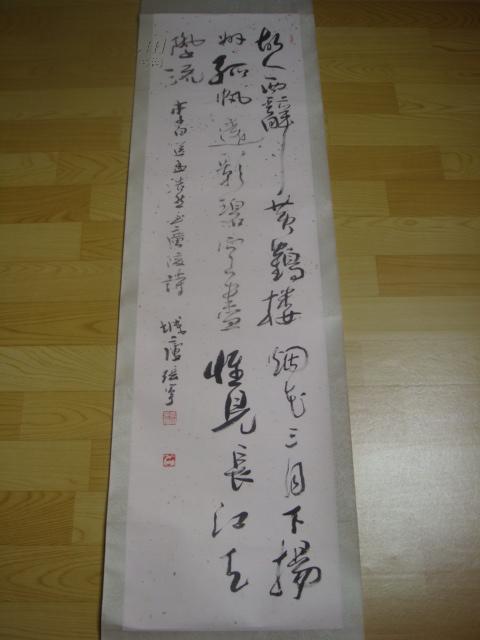 故人西辭黄鶴楼烟花三月下揚
州孤帆遠影碧空盡惟見長江天
際流
李白送孟浩然之廣陵詩